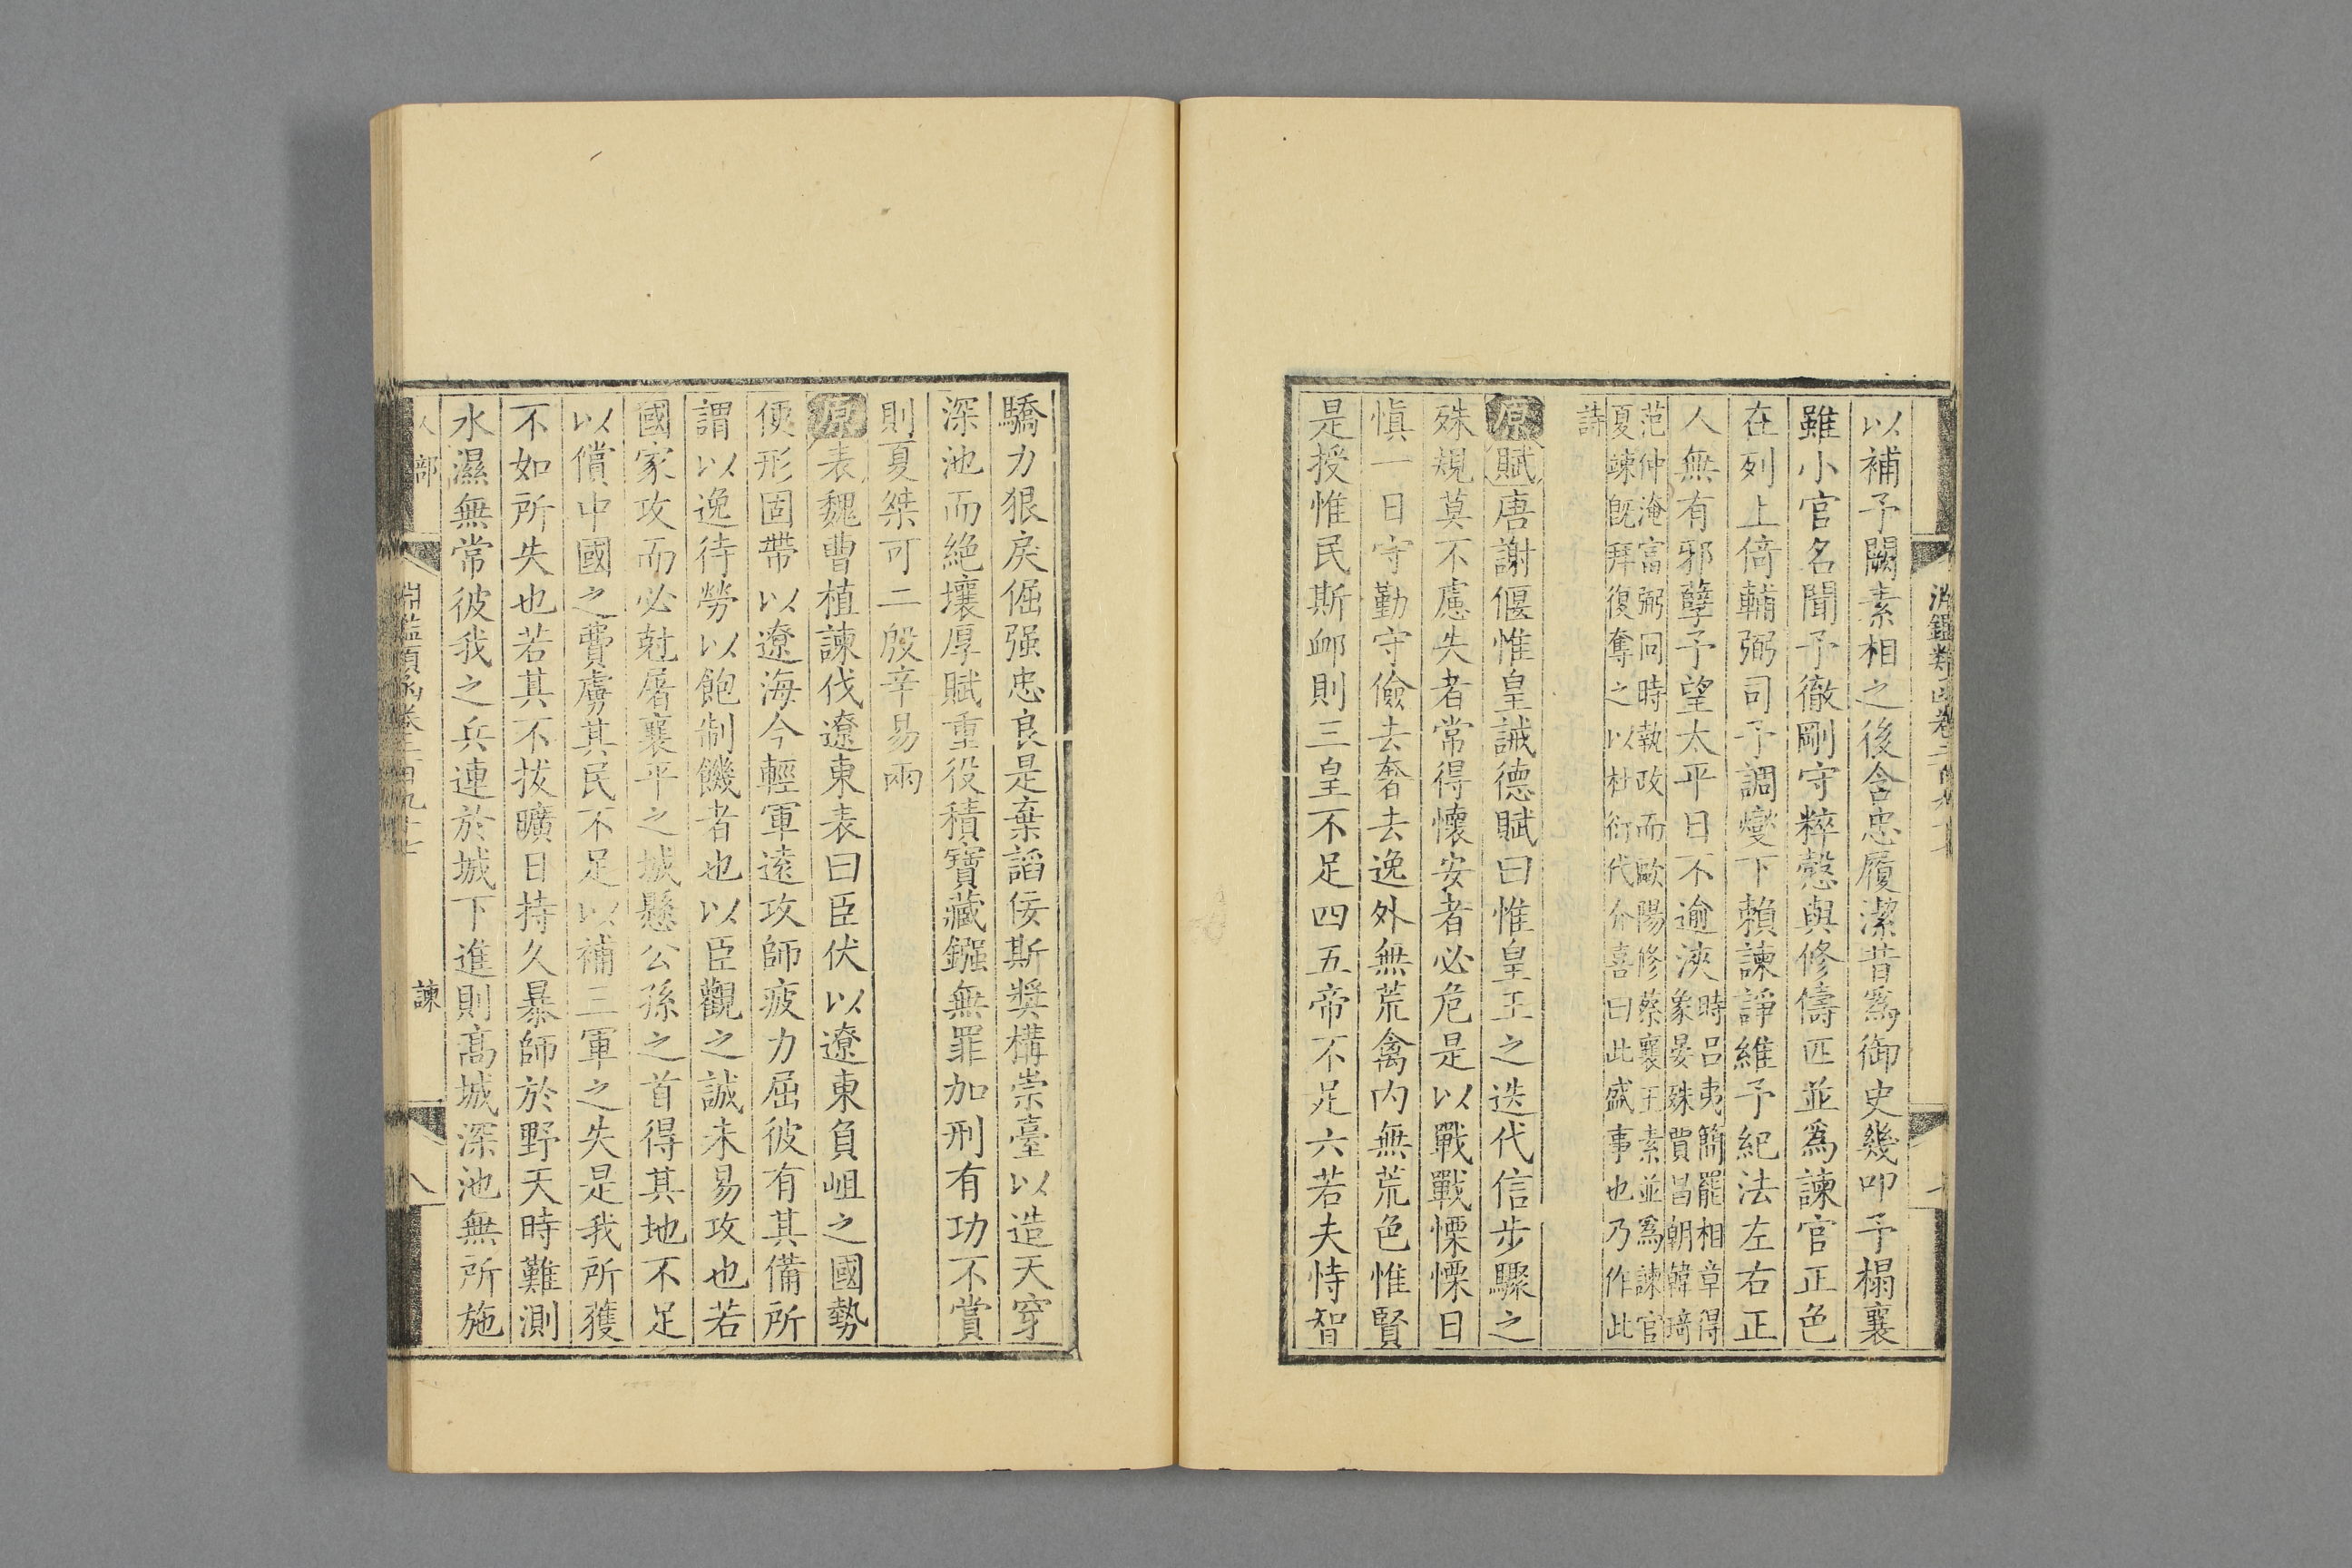 以補予闕素相之後含忠履潔昔爲御史幾叩予榻襄
雖小官名聞予徹剛守粹慤與修儔匹並爲諫官正色
在列上倚輔弼司予調燮下賴諫諍維予紀法左右正
人無有邪孽予望太平日不逾浹時呂夷簡罷相章得
象晏殊賈昌朝韓琦
范仲淹富弼同時執政而歐陽修蔡襄王素並爲諫官
夏竦旣拜復奪之以杜衍代介喜曰此盛事也乃作此
詩
原賦唐謝偃惟皇誡德賦曰惟皇王之迭代信步驟之
殊規莫不慮失者常得懷安者必危是以戰戰慄慄日
慎一日守勤守儉去奢去逸外無荒禽内無荒色惟賢
是授惟民斯邺則三皇不足四五帝不足六若夫恃智
驕力狠戾倔强忠良是棄謟佞斯奬構崇臺以造天穿
深池而絶壤厚賦重役積寶藏鏹無罪加刑有功不賞
則夏桀可二殷辛易兩
原表魏曹植諫伐遼東表曰臣伏以遼東負岨之國勢
便形固帶以遼海今輕軍遠攻師疲力屈彼有其備所
謂以逸待勞以飽制饑者也以臣觀之誠未易攻也若
國家攻而必尅屠襄平之城懸公孫之首得其地不足
以償中國之費虜其民不足以補三軍之失是我所獲
不如所失也若其不拔曠日持久暴師於野天時難測
水濕無常彼我之兵連於城下進則高城深池無所施
人部
淵鑑類函卷二百九十七
諫
八